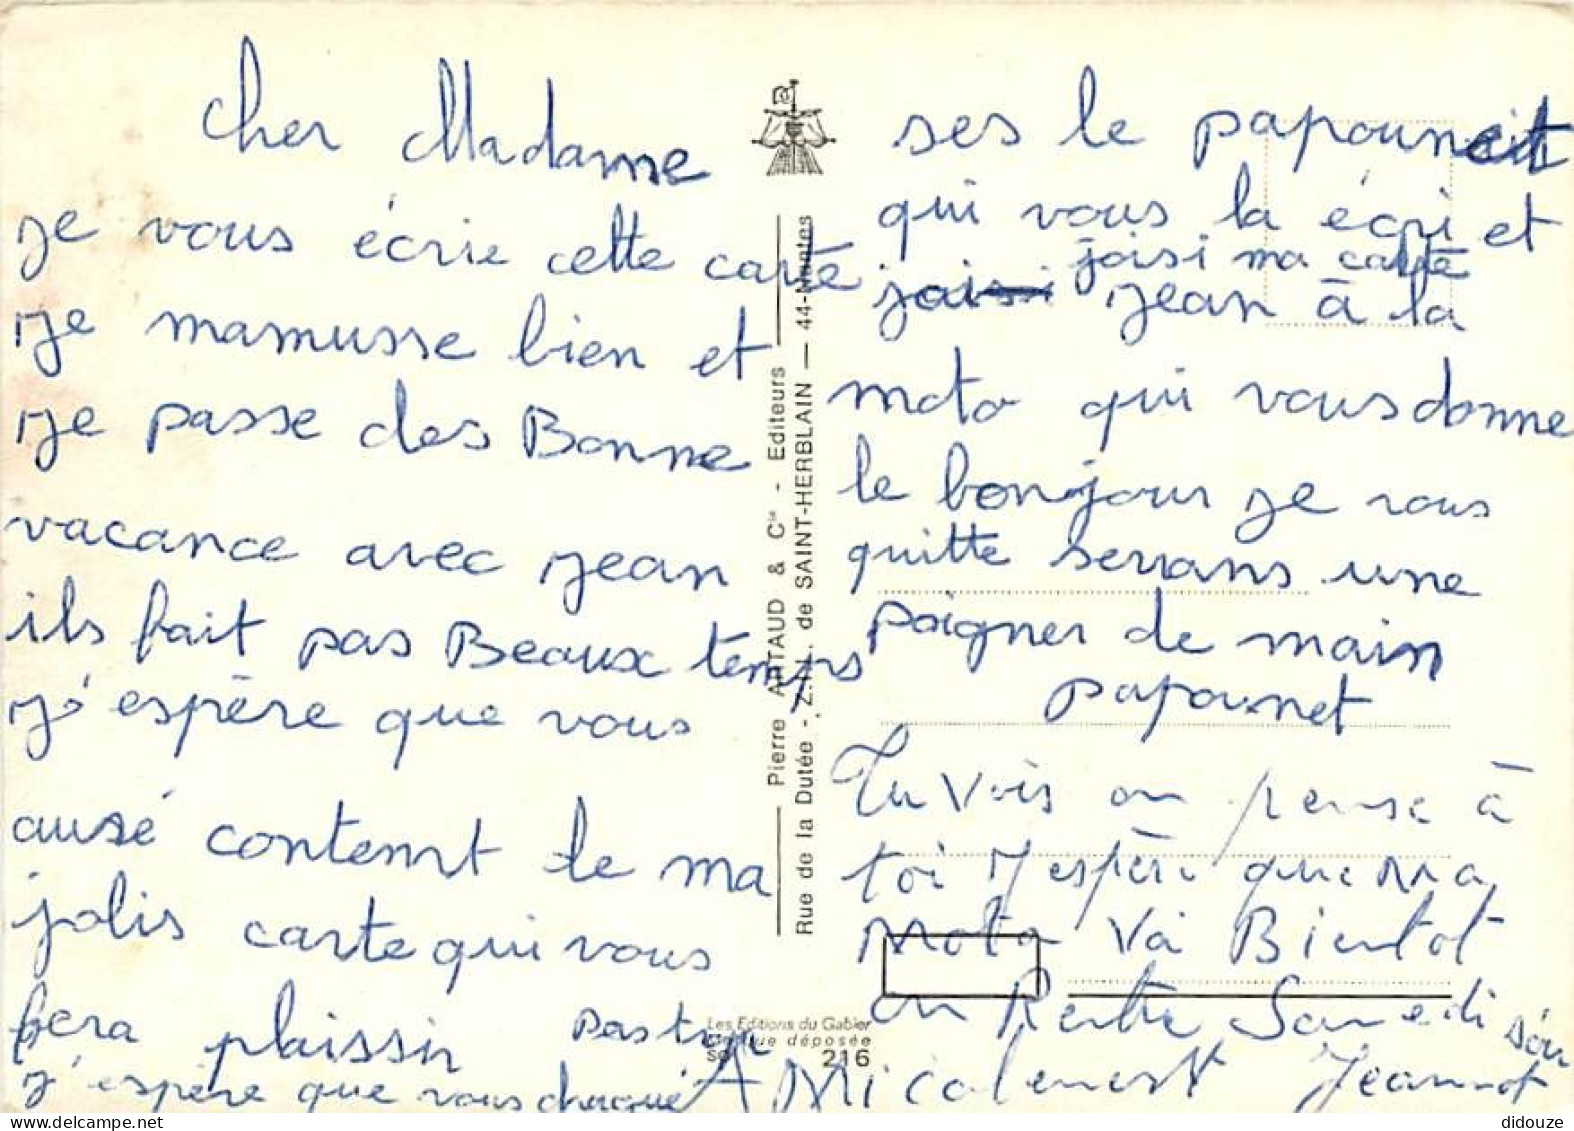 cher Madame
je vous écrie cette carte
je mamusse bien et
je passe des Bonne
vacance avec jean
ils fait pas Beaux temps
j'espère que vous
ausé contemt de ma
jolis carte qui vous
fera plaissir
j'espère que vous
ses le papounet
qui vous la écri et
joisi ma carte
jean à la
moto qui vous donne
le bonjour je vous
quitte serrans une
poigner de main
papounet
Tu vois on pense à
toi J espère que ma
moto va Bientot
on Rentre Samedi soir
AMicalement Jeannot
Pierre ARTAUD & Cie - Editeurs
Rue de la Dutée - Z.I. de SAINT-HERBLAIN — 44-Nantes
Les Editions du Gabier
Marque déposée
216
didouze